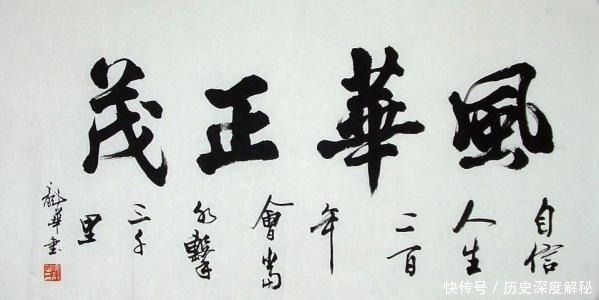 風華正茂
自信
人生
二百
年
會當
水擊
三千
里
龍華書
快传号 / 历史深度解秘